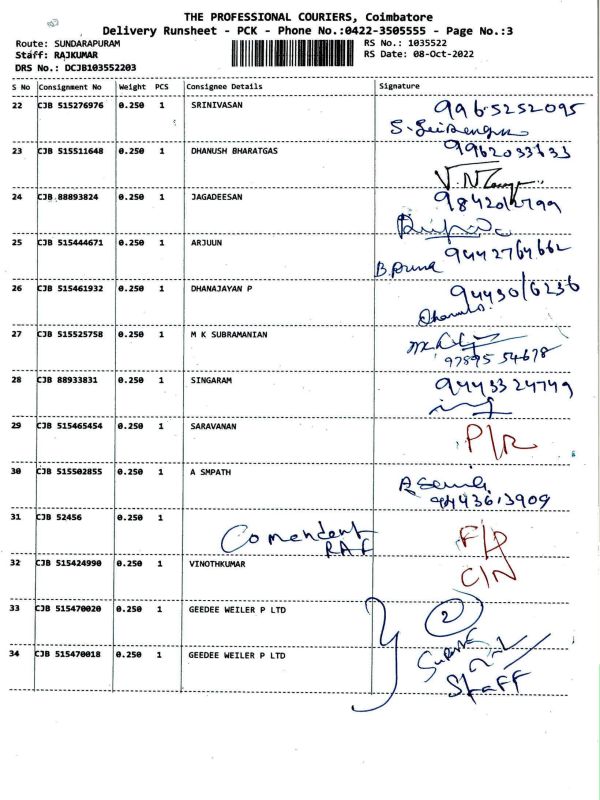 THE PROFESSIONAL COURIERS, Coimbatore
Delivery Runsheet - PCK - Phone No.:0422-3505555 - Page No.:3
Route: SUNDARAPURAM
RS No.: 1035522
Staff: RAJKUMAR
RS Date: 08-Oct-2022
DRS No.: DCJB103552203
S No Consignment No Weight PCS Consignee Details Signature
22 CJB 515276976 0.250 1 SRINIVASAN 9965252095
23 CJB 515511648 0.250 1 DHANUSH BHARATGAS 9962033633
24 CJB 88893824 0.250 1 JAGADEESAN
25 CJB 515444671 0.250 1 ARJUUN 9442764662
26 CJB 515461932 0.250 1 DHANAJAYAN P 9443016236
27 CJB 515525758 0.250 1 M K SUBRAMANIAN
97895 54678
28 CJB 88933831 0.250 1 SINGARAM 9443324749
29 CJB 515465454 0.250 1 SARAVANAN P/R
30 CJB 515502855 0.250 1 A SMPATH
9443613909
31 CJB 52456 0.250 1 Comendent F/D
RAF
32 CJB 515424990 0.250 1 VINOTHKUMAR C/N
33 CJB 515470020 0.250 1 GEEDEE WEILER P LTD 2
34 CJB 515470018 0.250 1 GEEDEE WEILER P LTD
Staff